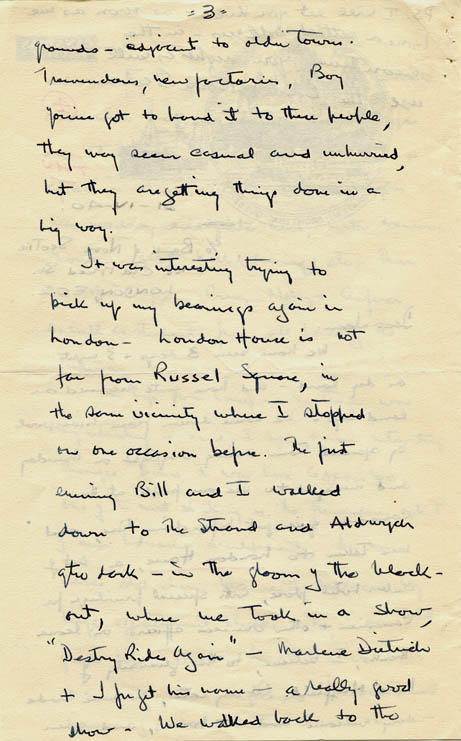 - 3 -
grounds - adjacent to older towns.
Tremendous, new factories, Boy
you've got to hand it to these people,
they may seem casual and unhurried,
but they are getting things done in a
big way.
It was interesting trying to
pick up my bearings again in
London - London House is not
far from Russel Square, in
the same vicinity where I stopped
on one occasion before. The first
evening Bill and I walked
down to The Strand and Aldwych
after dark - in the gloom of the black-
out, where we took in a show,
"Destry Rides Again" - Marlene Dietrich
+ I forget his name - a really good
show -. We walked back to the